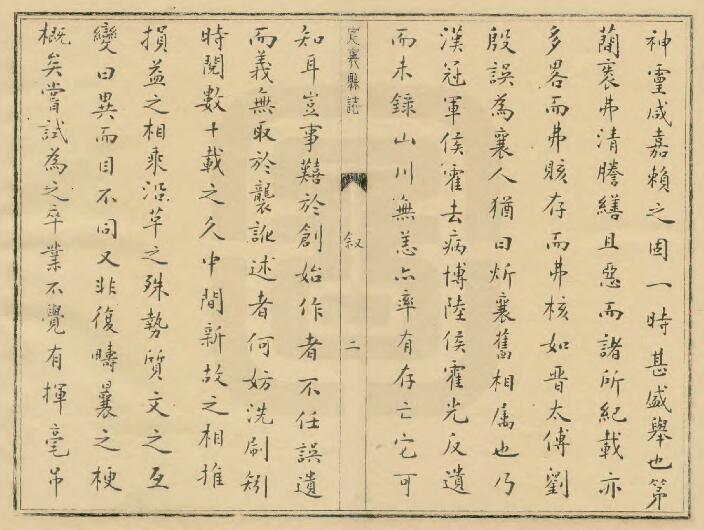 神靈咸嘉賴之固一時甚盛舉也第
蘭裒弗清謄繕且惡而諸所紀載亦
多畧而弗賅存而弗核如晋太傅劉
殷誤為襄人猶曰炘襄舊相属也乃
漢冠軍侯霍去病博陸侯霍光反遺
而未錄山川無恙亦率有存亡它可
定襄縣誌
叙
二
知耳豈事難於創始作者不任誤遺
而義無取於襲訛述者何妨洗刷矧
時閱數十載之久中間新故之相推
損益之相乘沿革之殊勢質文之互
變日異而月不同又非復疇曩之梗
概矣嘗試為之卒業不覺有揮毫吊